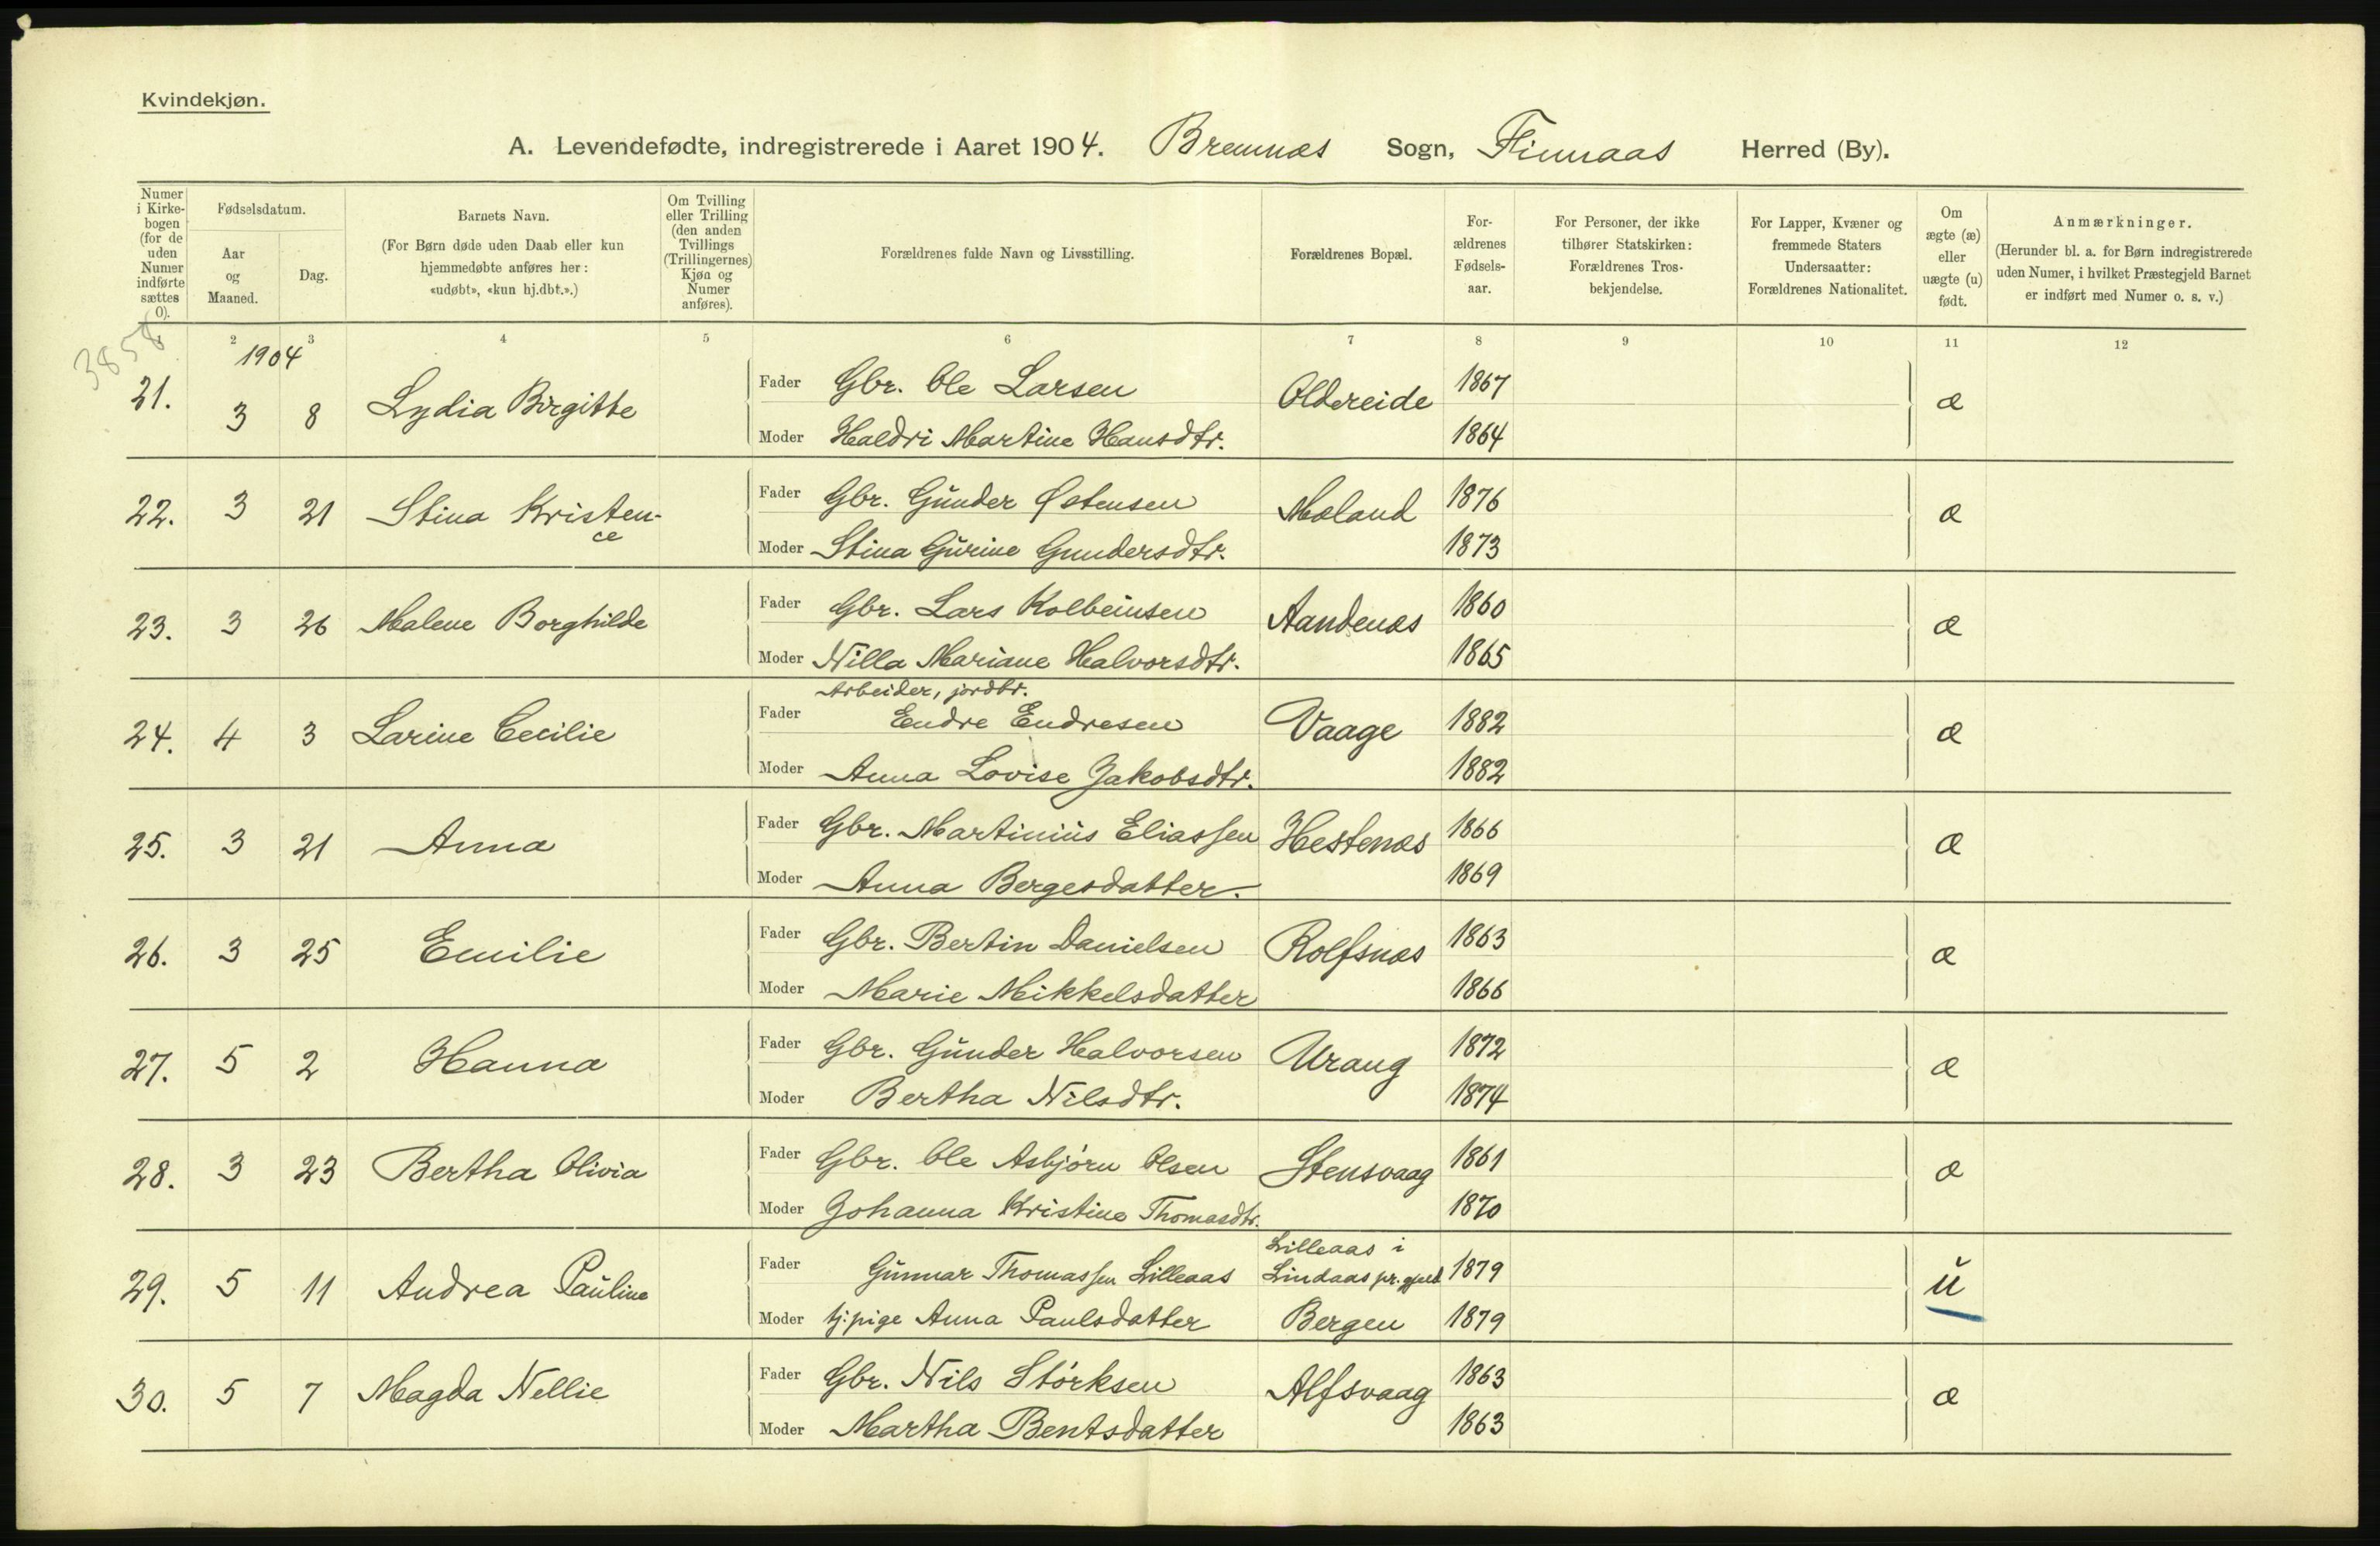 Kvindekjøn.
A. Levendefødte, indregistrerede i Aaret 1904. Bremnæs Sogn, Finnaas Herred (By).
Numer i Kirkebogen (for de uden Numer indførte sættes 0).
Fødselsdatum.
Aar og Maaned.
Dag.
Barnets Navn.
(For Børn døde uden Daab eller kun hjemmedøbte anføres her: «udøbt», «kun hj.dbt.».)
Om Tvilling eller Trilling (den anden Tvillings (Trillingernes) Kjøn og Numer anføres).
Forældrenes fulde Navn og Livsstilling.
Forældrenes Bopæl.
Forældrenes Fødselsaar.
For Personer, der ikke tilhører Statskirken: Forældrenes Trosbekjendelse.
For Lapper, Kvæner og fremmede Staters Undersaatter: Forældrenes Nationalitet.
Om ægte (æ) eller uægte (u) født.
Anmærkninger.
(Herunder bl. a. for Børn indregistrerede uden Numer, i hvilket Præstegjeld Barnet er indført med Numer o. s. v.)
3858
2 3 4 5 6 7 8 9 10 11 12
1904
21. 3 8 Lydia Birgitte Fader Gbr. Ole Larsen Oldereide 1867 æ
Moder Haldri Martine Hansdtr. 1864
22. 3 21 Stina Kristen- Fader Gbr. Gŭnder Østensen Mæland 1876 æ
ce Moder Stina Gŭrine Gundersdtr. 1873
23. 3 26 Malene Borghilde Fader Gbr. Lars Kolbeinsen Aandenæs 1860 æ
Moder Nilla Mariane Halvorsdtr. 1865
Arbeider, jordbr.
24. 4 3 Larine Cecilie Fader Endre Endresen Vaage 1882 æ
Moder Anna Lovise Jakobsdtr. 1882
25. 3 21 Anna Fader Gbr. Martiniŭs Eliassen Hestenæs 1866 æ
Moder Anna Bergesdatter. 1869
26. 3 25 Emilie Fader Gbr. Bertin Danielsen Rolfsnæs 1863 æ
Moder Marie Mikkelsdatter 1866
27. 5 2 Hanna Fader Gbr. Gŭnder Halvorsen Urang 1872 æ
Moder Bertha Nilsdtr. 1874
28. 3 23 Bertha Olivia Fader Gbr. Ole Asbjörn Olsen Stensvaag 1861 æ
Moder Johanna Kristine Thomasdtr. 1870
Lilleaas i
29. 5 11 Andrea Paŭline Fader Gŭnnar Thomassen Lilleaas Lindaas pr.gjeld 1879 ŭ
Moder tj:pige Anna Paulsdatter Bergen 1879
30. 5 7 Magda Nellie Fader Gbr. Nils Störksen Alfsvaag 1863 æ
Moder Martha Bentsdatter 1863